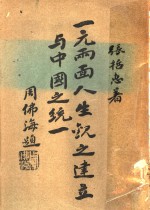 張梧忠著
一元兩面人生觀之建立
与中國之統一
周佛海題